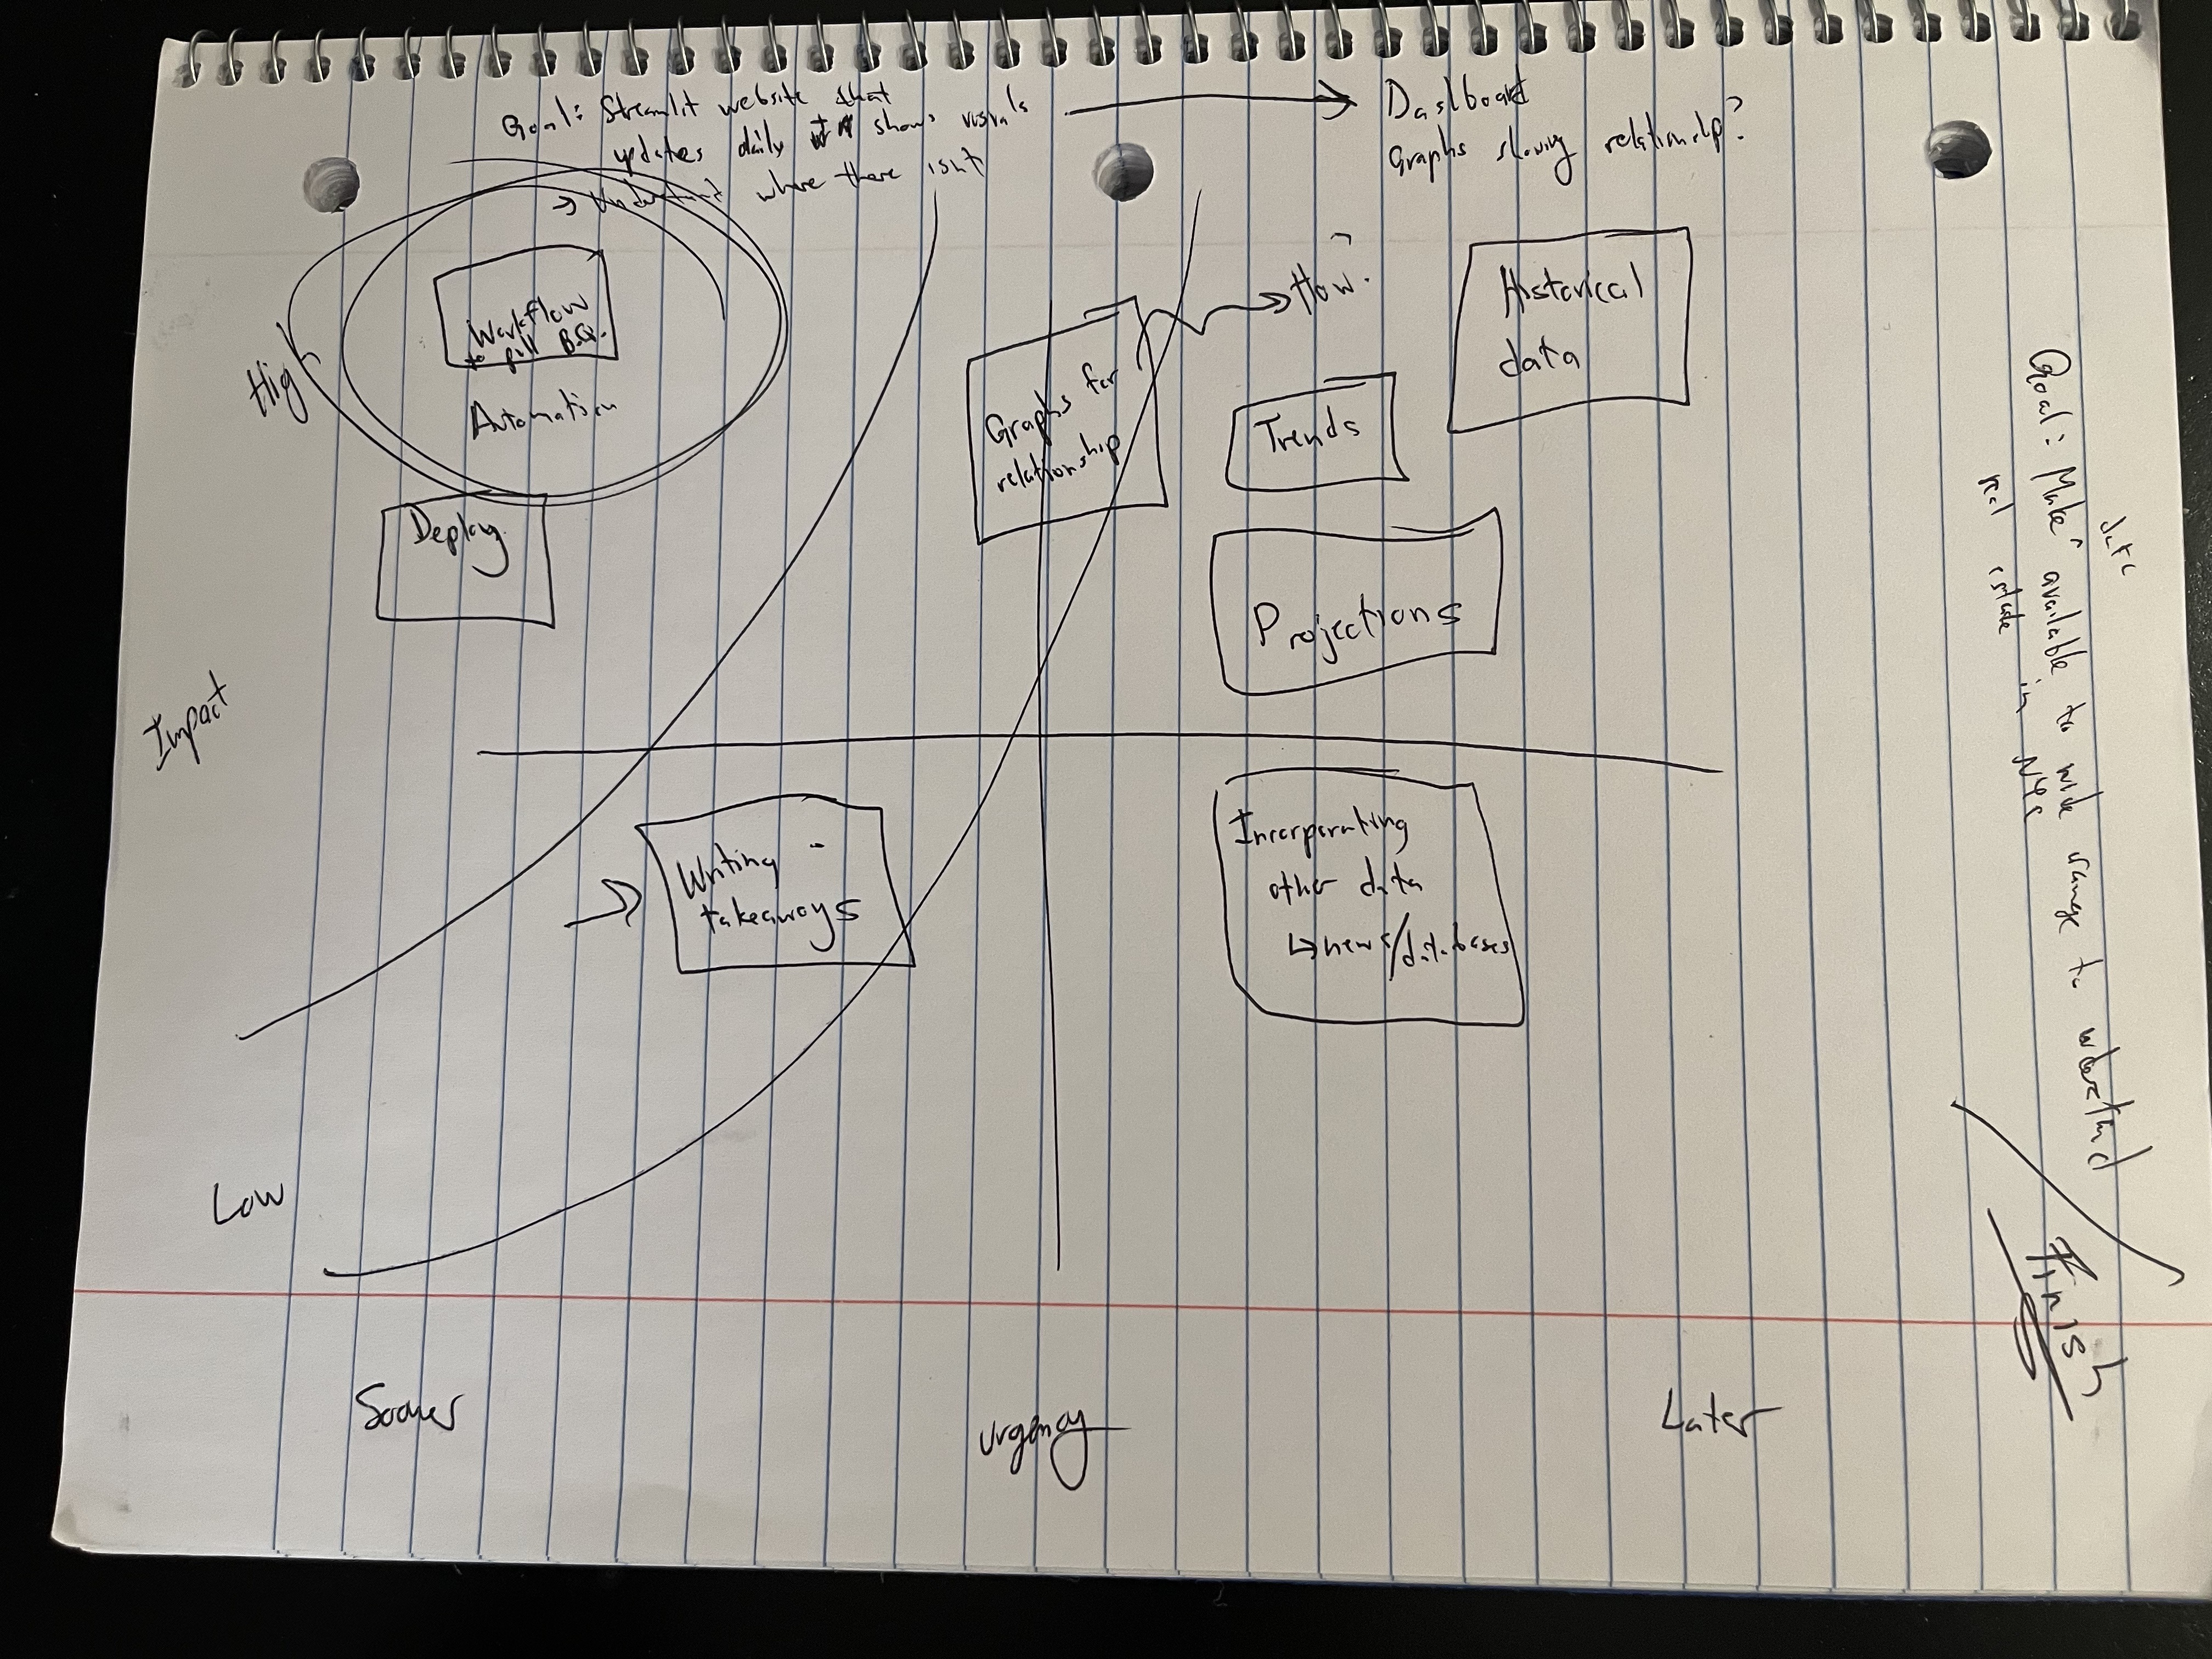 Goal: Streamlit website that
updates daily shows visuals
→ Understand where there isnt
Dashboard
Graphs showing relationship?
High
Workflow
to pull B.Q.
Automation
Deploy
Graphs for
relationship
How?
Trends
Historical
data
Projections
Impact
Writing
takeaways
Incorporating
other data
↳ news/databases
Low
Sooner
urgency
Later
data
Goal: Make ^ available to wide range to understand
real estate in NYC
Finish